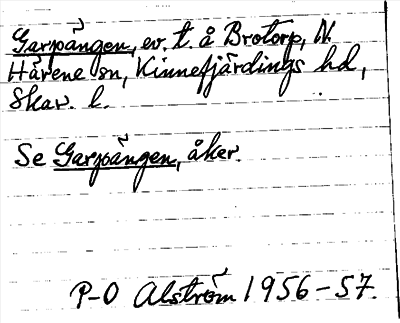 Garpången, ev. t. å Brotorp, N.
Härene sn, Kinnefjärdings hd,
Skar. l.
Se Garpången, åker.
P-O Alström 1956-57.